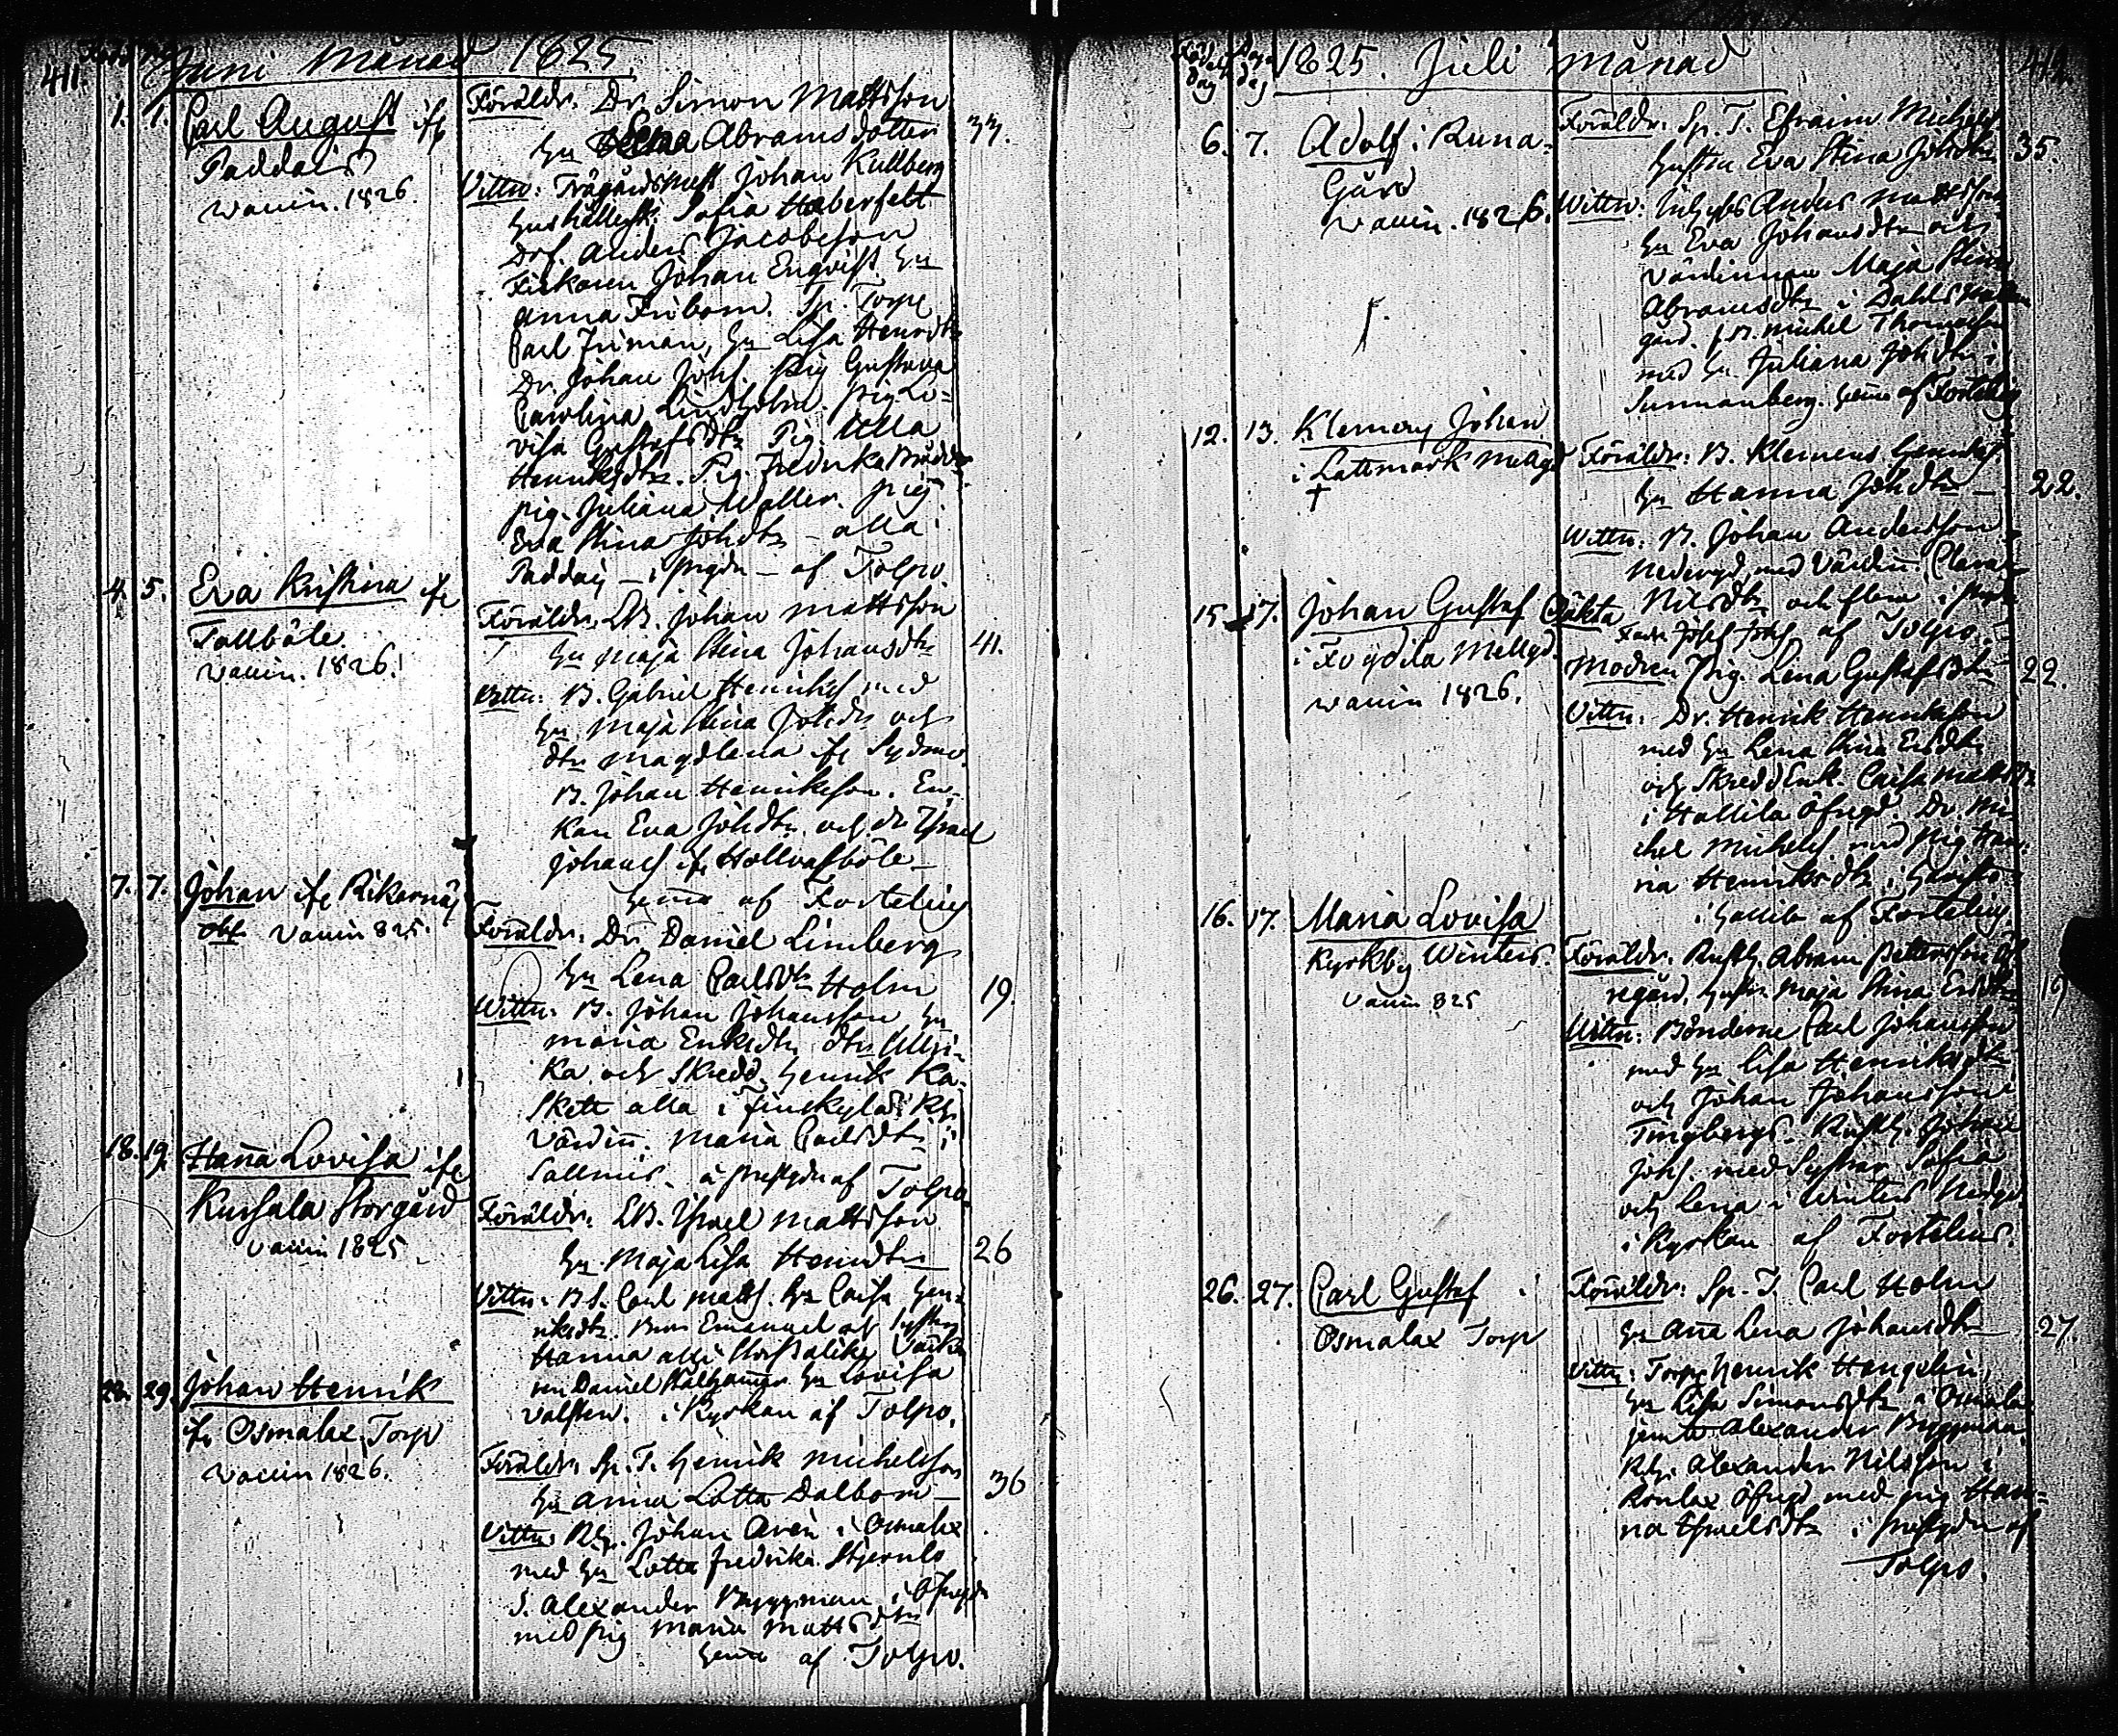 411.
Juni Månad 1825.
1. 1. Carl August ifr
Paddais
vaccin. 1826.
Föräldr. Dr. Simon Mattsson
hu Lena Abramsdotter 33.
Vittn: Trägårdsmest Johan Kullberg
Hushållersk. Sofia Haberfelt
Drf. Anders Jacobsson
Fiskaren Johan Enqvist hu
Anna Fribom. Sp. Torp.
Carl Friman, hu Lisa Henrdtr
Dr. Johan Johs. Pig Gustava
Carolina Lindholm. pig Lo-
visa Gustafsdtr Pig. Ulla
Henriksdtr. Pig. Fredrika
pig. Juliana Waller. pig
Eva Stina Johdtr - alla i
Paddais - i prgdn - af Tolpo.
4. 5. Eva Kristina ifr
Tallböle.
vaccin. 1826.
Föräldr. LB. Johan Mattsson
hu Maja Stina Johansdtr 41.
Vittn: B. Gabriel Henrikss med
hu Maja Stina Johdtr och
dtr Magdlena ifr Sydmo
B. Johan Henriksson. En-
kan Eva Johdtr. och dr Israel
Johanss ifr Hollvasböle
hema af Fortelius
7. 7. Johan ifr Rikarnäs
vaccin 825.
Föräldr: Dr. Daniel Limberg
hu Lena Carlsdtr Holm 19.
Vittn: B. Johan Johansson hu
Maria Eriksdtr dtr Ulri-
ka och Skredd. Henrik Ka-
skett alla i Finskyla. Rh.
Värdinn. Maria Carlsdtr i
Sallmis. i prestgdn af Tolpo
18. 19. Hanna Lovisa ifr
Kursala Storgård
vaccin 1825
Föräldr: LB. Israel Mattsson
hu Maja Lisa Henrdtr 26
Vittn: BS. Carl Matts. hu Caisa Hen-
riksdtr. Bror Emanuel och syster
Hanna alla
ren Daniel hu Lovisa
Valsten. i Kyrkan af Tolpo.
28. 29. Johan Henrik
ifr Osmalax Torp
vaccin 1826.
Föräldr. Sp. T. Henrik Michelsson
hu Anna Lotta Dalbom 36
Vittn: Rh. Johan Aren i Osmalax
med hu Lotta Fredrika Stjernlo
S. Alexander Byggman i Öfregdn
med pig Maria Mattsdtr
hema af Tolpo.
Födels dag
1825. Juli månad
412.
6. 7. Adolf i Runa-
Gård
vaccin. 1826.
Föräldr: Sp. T. Efraim Michelss
hustru Eva Stina Johdtr 35.
Vittn: Inhyses Anders Mattsson
hu Eva Johansdtr och
Värdinnan Maja Stina
Abramsdtr i Dahls
gård. Michel Thomasson
med hu Juliana Johdtr i
Sunnanberg. hema af Fortelius
12. 13. Klemens Johan
i Lattmark Mellgd
†
Föräldr: B. Klemens Henrikss
hu Hanna Johdtr 22.
Vittn: B. Johan Andersson
Nedergd med Värdin. Clara
Nilsdtr och flera i
af Tolpo.
15. 17. Johan Gustaf Oäkta
i Froydila Mellgd.
vaccin 1826.
Fadr Josef Josefs.
Modren Pig. Lena Gustafsdtr 22.
Vittn: Dr. Henrik Henriksson
med hu Lena Stina Ersdtr
och Skredd Enk. Caisa Mattsdtr
i Hallila Öfregd. Dr. Mi-
chel Michels med pig Han-
na Henriksdtr i
i Hallila af Fortelius
16. 17. Maria Lovisa
Kyrkby Winters.
vaccin 825
Föräldr: Rusth. Abram Pettersson Öf-
regård, hustru Maja Stina Ersdtr 19
Vittn: Bönderne Carl Johansson
med hu Lisa Henriksdtr
och Johan Johansson
Tingbergs. Rusth. Johan
Johs. med Systrar Sofia
och Lena i Winters Nedgd
i Kyrkan af Fortelius.
26. 27. Carl Gustaf i
Osmalax Torp
Föräldr: Sp. T. Carl Holm
hu Anna Lena Johansdtr 27.
Vittn: Torp. Henrik Hangelin,
hu Lisa Simonsdtr i Osmala
jemte Alexander Byggman.
Rh. Alexander Nilsson i
Rönlax Öfregd med pig Han-
na Israelsdtr i prestgdn af
Tolpo.